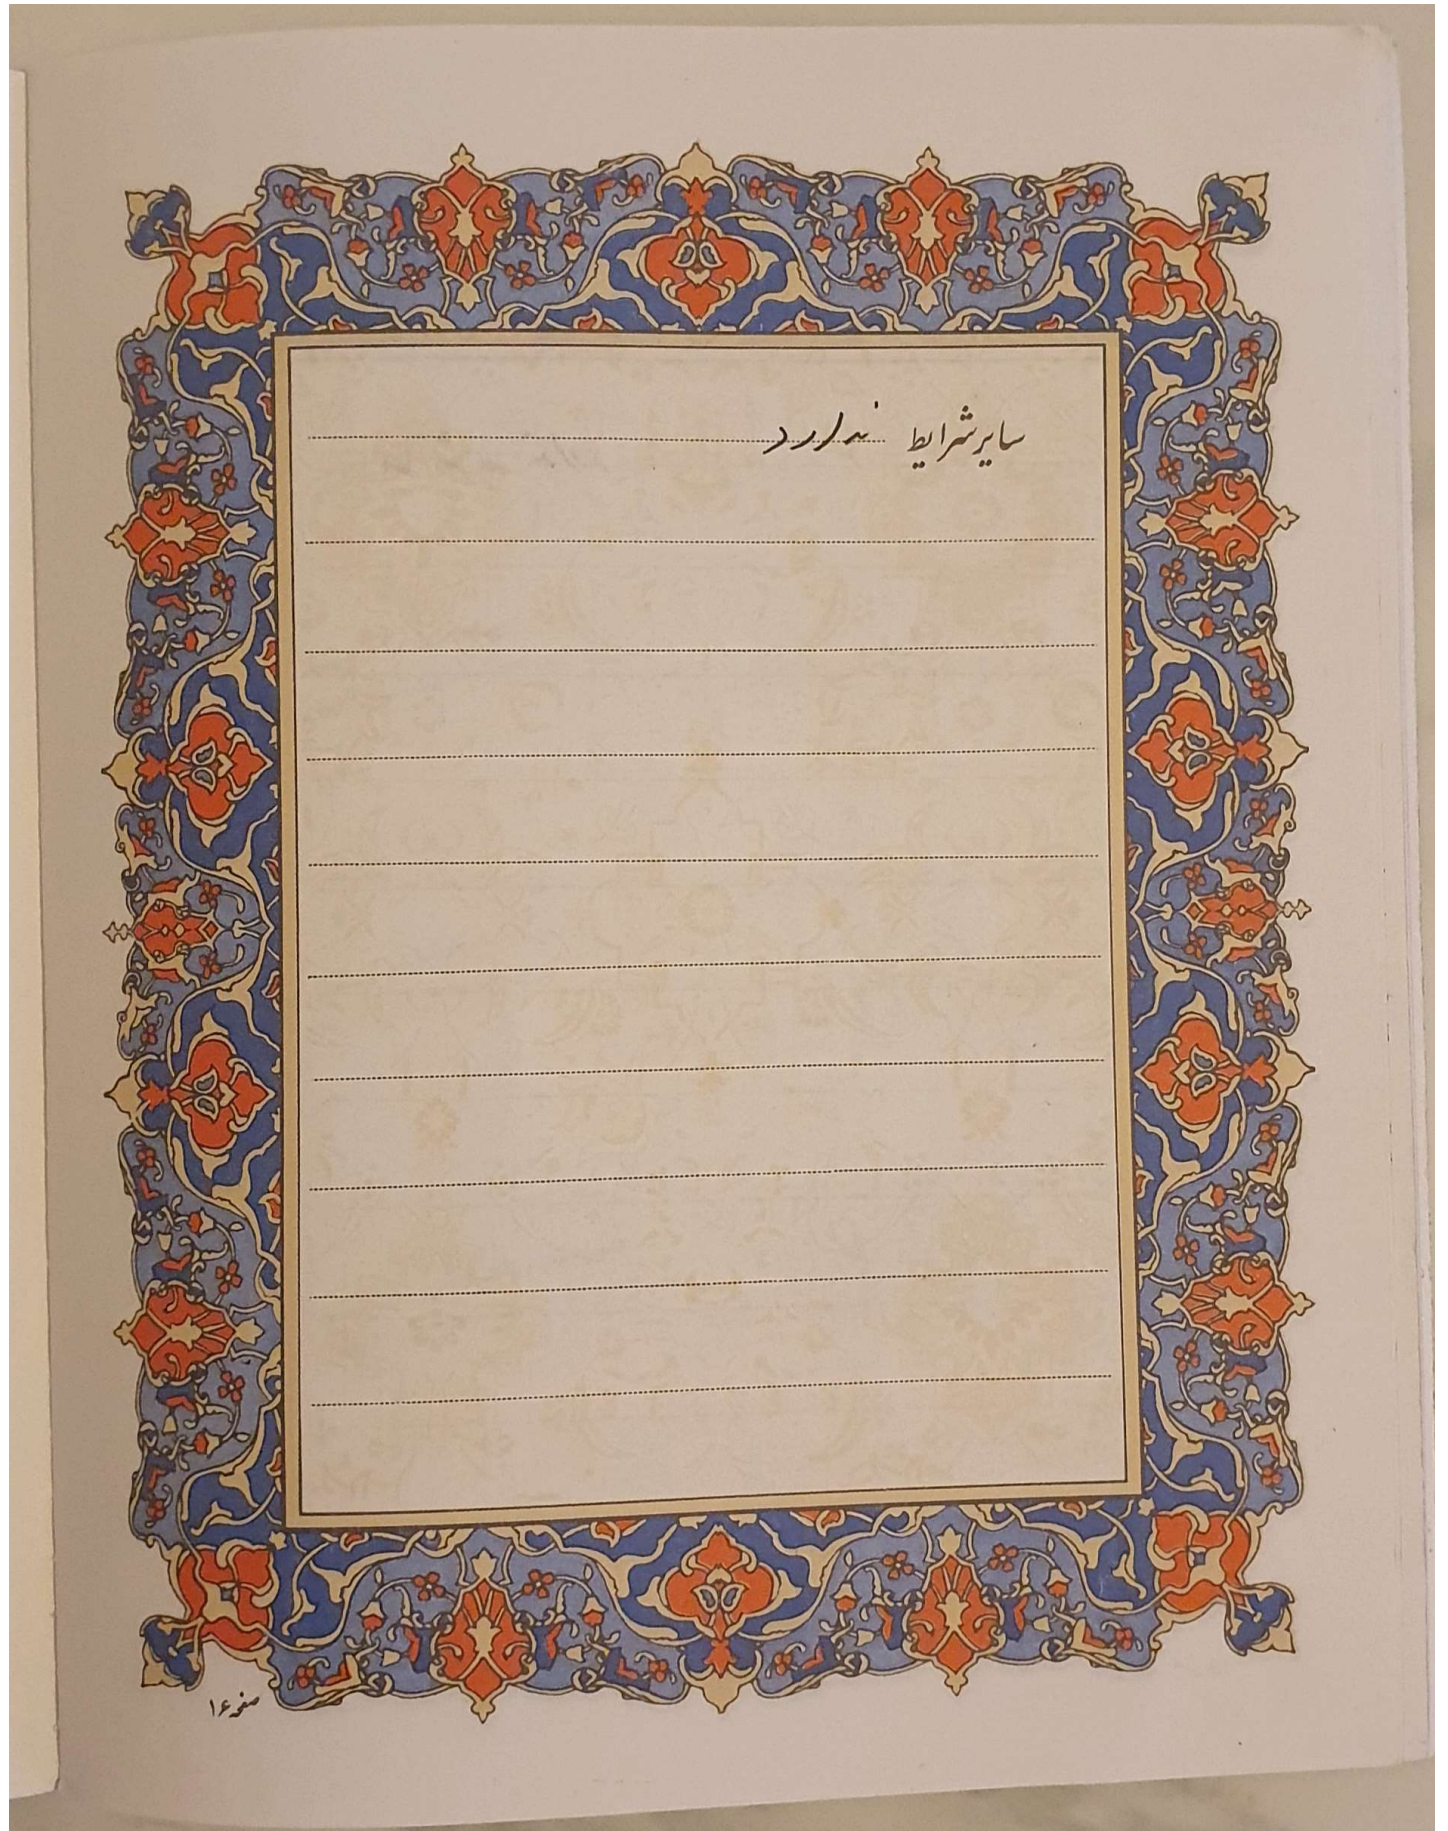 سایر شرایط ندارد
صفحه ۱۶